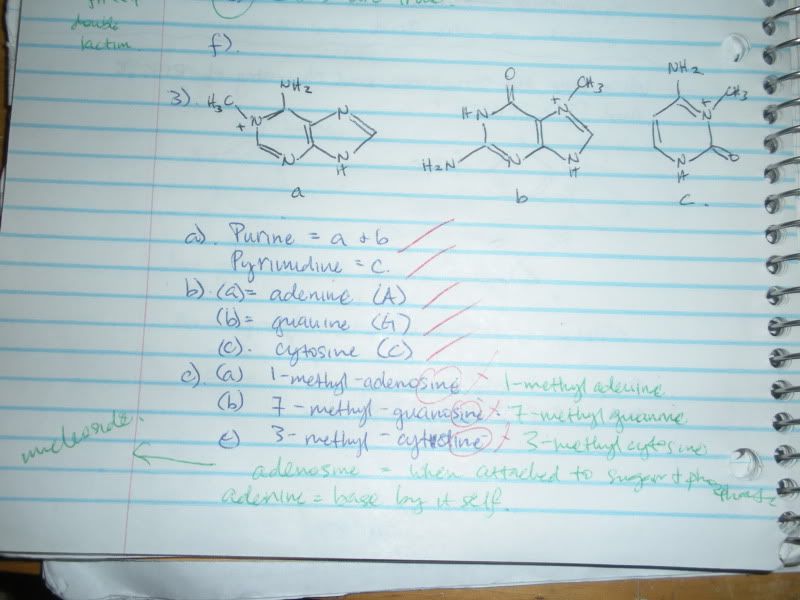 double
lactim.
f).
3).
H₃C
NH₂
N
+
N
N
N
H
a
O
CH₃
HN
N
+
H₂N
N
N
H
b
NH₂
CH₃
N
+
N
H
O
c.
a). Purine = a + b
Pyrimidine = c.
b). (a) = adenine (A)
(b) = guanine (G)
(c). cytosine (C)
c). (a) 1-methyl-adenosine 1-methyl adenine
(b) 7-methyl-guanosine 7-methyl guanine
c) 3-methyl- 3-methyl cytosine
nucleoside.
adenosine = when attached to sugar + phosphate
adenine = base by it self.